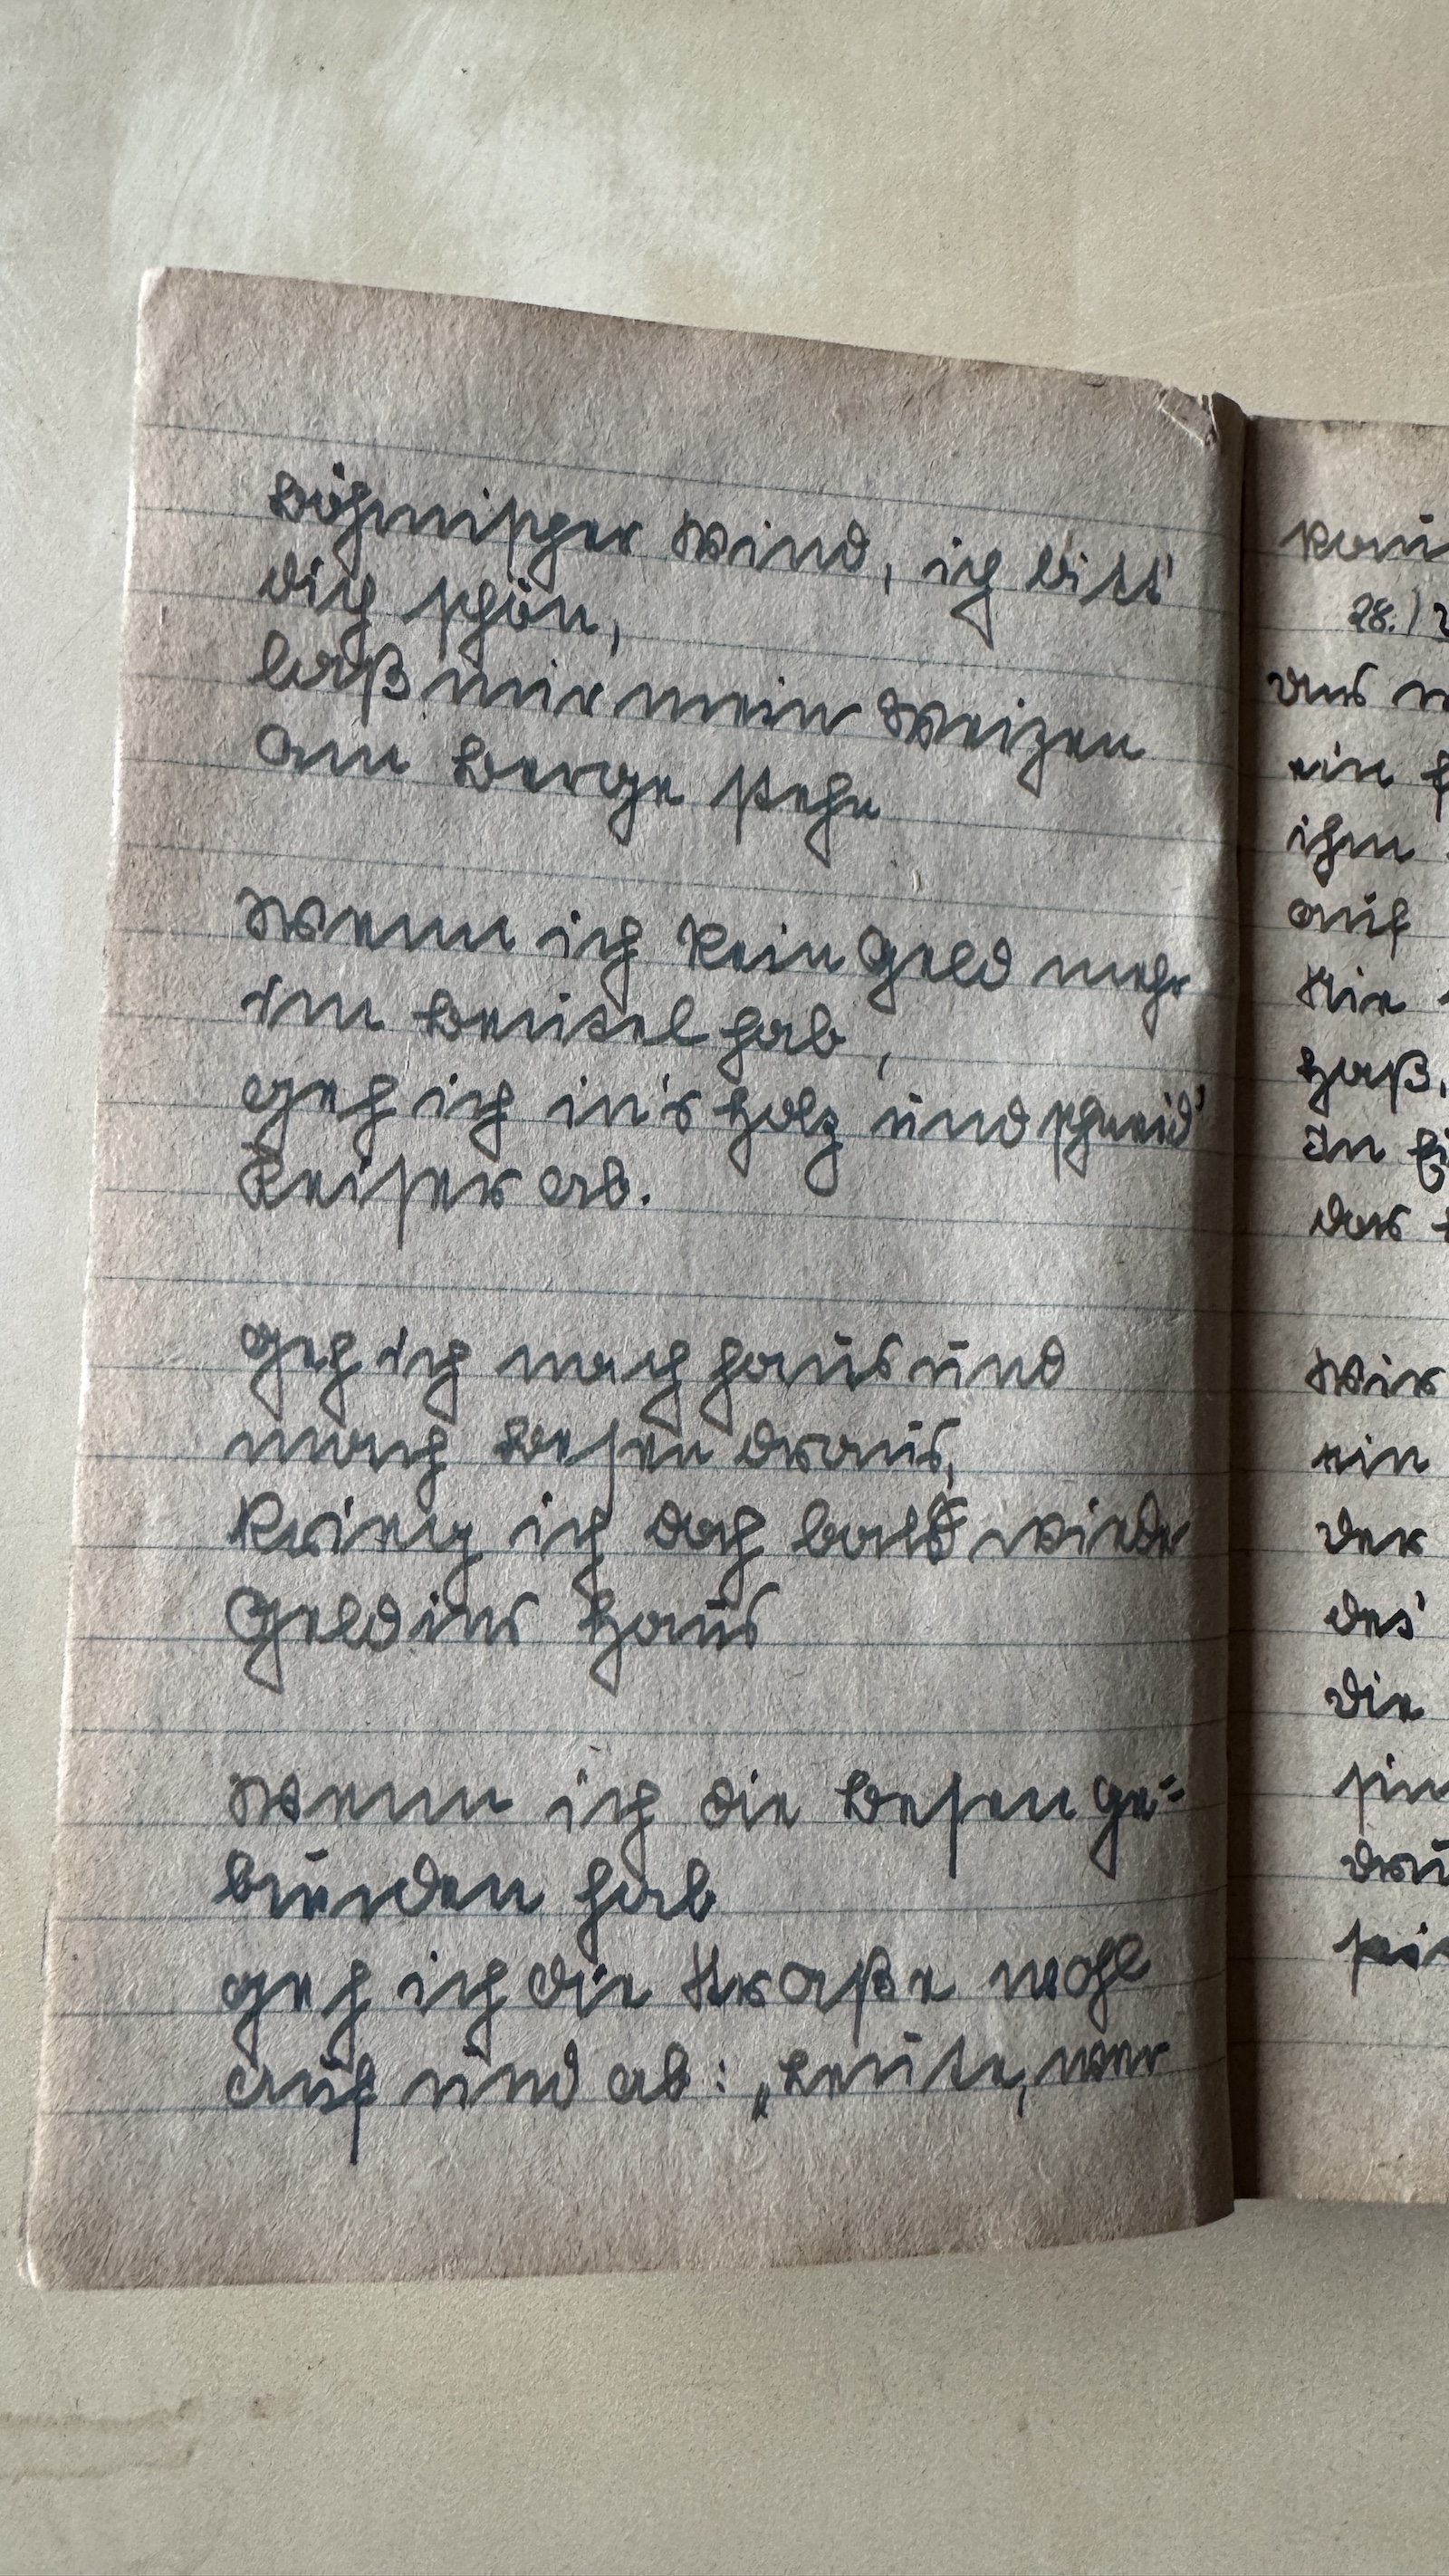 Böhmischer Wind, ich bitt'
dich schön,
laß mir mein Weizen
am Berge stehn
Wenn ich kein Geld mehr
im Beutel hab,
geh ich in's Holz und schneid'
Reiser ab.
Geh ich nach haus und
mach Besen draus,
krieg ich doch bald wieder
Geld ins Haus
Wenn ich die Besen ge=
bunden hab
geh ich die Straße wohl
auf und ab: „Leute, wer
28.)
aus
ein
ihm
auf
Wie
Haß,
In
das
Wir
ein
der
des'
die